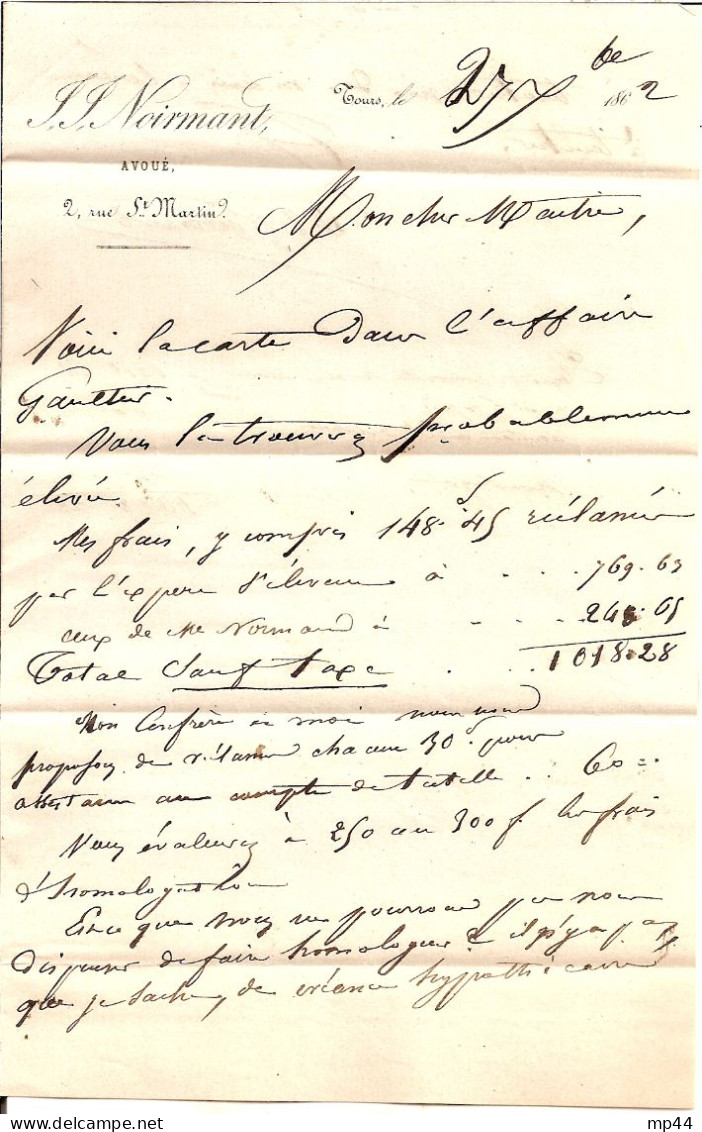 J. J. Noirmant,
AVOUÉ,
2, rue St Martin 2.
Tours, le 27 Xbe 1862
Mon cher Maître,
Voici la carte dans l'affaire
Gaultier.
Vous la trouverez probablement
élevée.
Mes frais, y compris 148.45 réclamés
par l'expert s'élèvent à . . . 769.63
ceux de Me Normand à . . . 248.65
Total sauf taxe . . . 1018.28
Mon confrère et moi nous nous
proposons de réclamer chacun 30 f pour
assistance au compte de tutelle . . 60 =
Vous évaluerez à 250 ou 300 f. les frais
d'homologation
Est ce que nous ne pourrons pas nous
dispenser de faire homologuer? il n'y a pas
que je sache, de créance hypothécaire
mp44